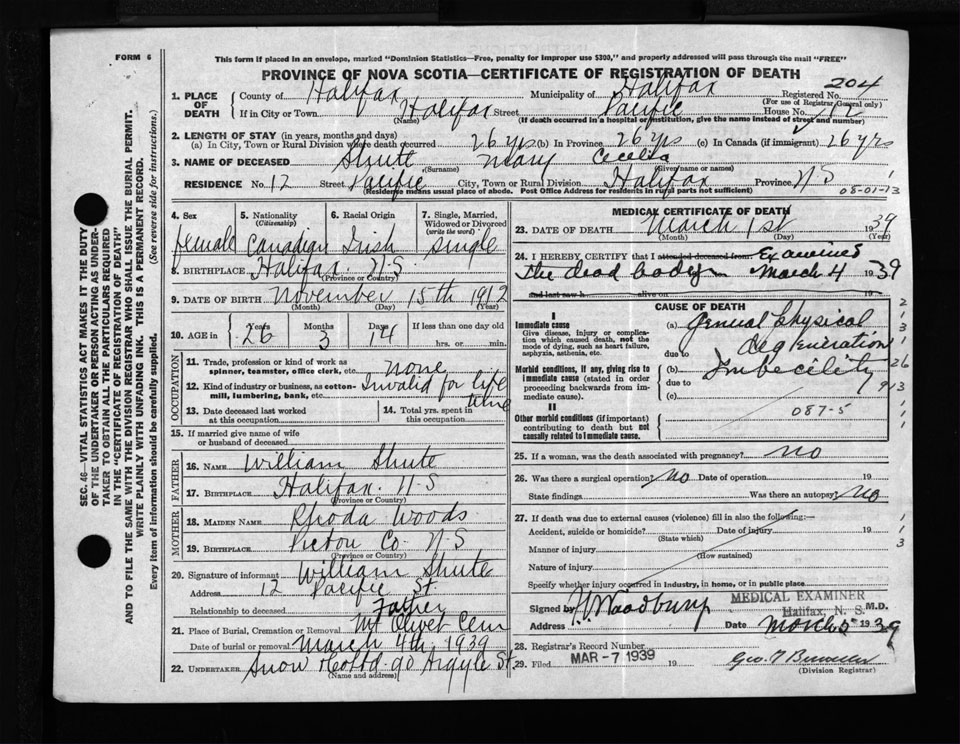 FORM 6
This form if placed in an envelope, marked "Dominion Statistics—Free, penalty for improper use $300," and properly addressed will pass through the mail "FREE"
PROVINCE OF NOVA SCOTIA—CERTIFICATE OF REGISTRATION OF DEATH
204
1. PLACE OF DEATH
County of Halifax Municipality of Halifax Registered No.
(For use of Registrar General only)
If in City or Town Halifax Street Pacific House No. 12
(Name) (If death occurred in a hospital or institution, give the name instead of street and number)
2. LENGTH OF STAY (in years, months and days)
(a) In City, Town or Rural Division where death occurred 26 yrs (b) In Province 26 yrs (c) In Canada (if immigrant) 26 yrs
3. NAME OF DECEASED Shute Mary Cecelia
(Surname) (Given name or names)
RESIDENCE No. 12 Street Pacific City, Town or Rural Division Halifax Province N S
(Residence means usual place of abode. Post Office Address for residents in rural parts not sufficient)
08-01-13
4. Sex female
5. Nationality (Citizenship) Canadian
6. Racial Origin Irish
7. Single, Married, Widowed or Divorced (write the word) single
8. BIRTHPLACE Halifax N.S.
(Province or Country)
9. DATE OF BIRTH November 15th 1912
(Month) (Day) (Year)
10. AGE in Years 26 Months 3 Days 14 If less than one day old
hrs. or min.
OCCUPATION
11. Trade, profession or kind of work as spinner, teamster, office clerk, etc. none
12. Kind of industry or business, as cotton-mill, lumbering, bank, etc. Invalid for life time
13. Date deceased last worked at this occupation
14. Total yrs. spent in this occupation
15. If married give name of wife or husband of deceased
FATHER
16. NAME William Shute
17. BIRTHPLACE Halifax N-S
(Province or Country)
MOTHER
18. MAIDEN NAME Rhoda Woods
19. BIRTHPLACE Pictou Co N-S
(Province or Country)
20. Signature of informant William Shute
Address 12 Pacific St.
Relationship to deceased Father
21. Place of Burial, Cremation or Removal Mt Olivet Cem
Date of burial or removal March 4th 1939
22. UNDERTAKER Snow & Co Ltd 90 Argyle St
(Name and address)
MEDICAL CERTIFICATE OF DEATH
23. DATE OF DEATH March 1st 1939
(Month) (Day) (Year)
24. I HEREBY CERTIFY that I attended deceased from Examined
the dead body on March 4 1939
and last saw h alive on 19
CAUSE OF DEATH
I
Immediate cause
Give disease, injury or complication which caused death, not the mode of dying, such as heart failure, asphyxia, asthenia, etc.
(a) General Physical degeneration
due to
Morbid conditions, if any, giving rise to immediate cause (stated in order proceeding backwards from immediate cause).
(b) Imbecility
due to
(c)
II
Other morbid conditions (if important) contributing to death but not causally related to immediate cause.
087-5
25. If a woman, was the death associated with pregnancy? no
26. Was there a surgical operation? No Date of operation 19
State findings Was there an autopsy? No
27. If death was due to external causes (violence) fill in also the following:—
Accident, suicide or homicide? Date of injury 19
(State which)
Manner of injury
(How sustained)
Nature of injury
Specify whether injury occurred in industry, in home, or in public place
Signed by Woodbury M.D.
MEDICAL EXAMINER
Halifax, N. S.
Address Date March 5th 1939
28. Registrar's Record Number
29. Filed MAR -7 1939 19
(Division Registrar)
SEC. 46—VITAL STATISTICS ACT MAKES IT THE DUTY
OF THE UNDERTAKER OR PERSON ACTING AS UNDERTAKER TO OBTAIN ALL THE PARTICULARS REQUIRED
IN THE "CERTIFICATE OF REGISTRATION OF DEATH"
AND TO FILE THE SAME WITH THE DIVISION REGISTRAR WHO SHALL ISSUE THE BURIAL PERMIT.
WRITE PLAINLY WITH UNFADING INK. THIS IS A PERMANENT RECORD.
Every item of information should be carefully supplied. (See reverse side for instructions.)